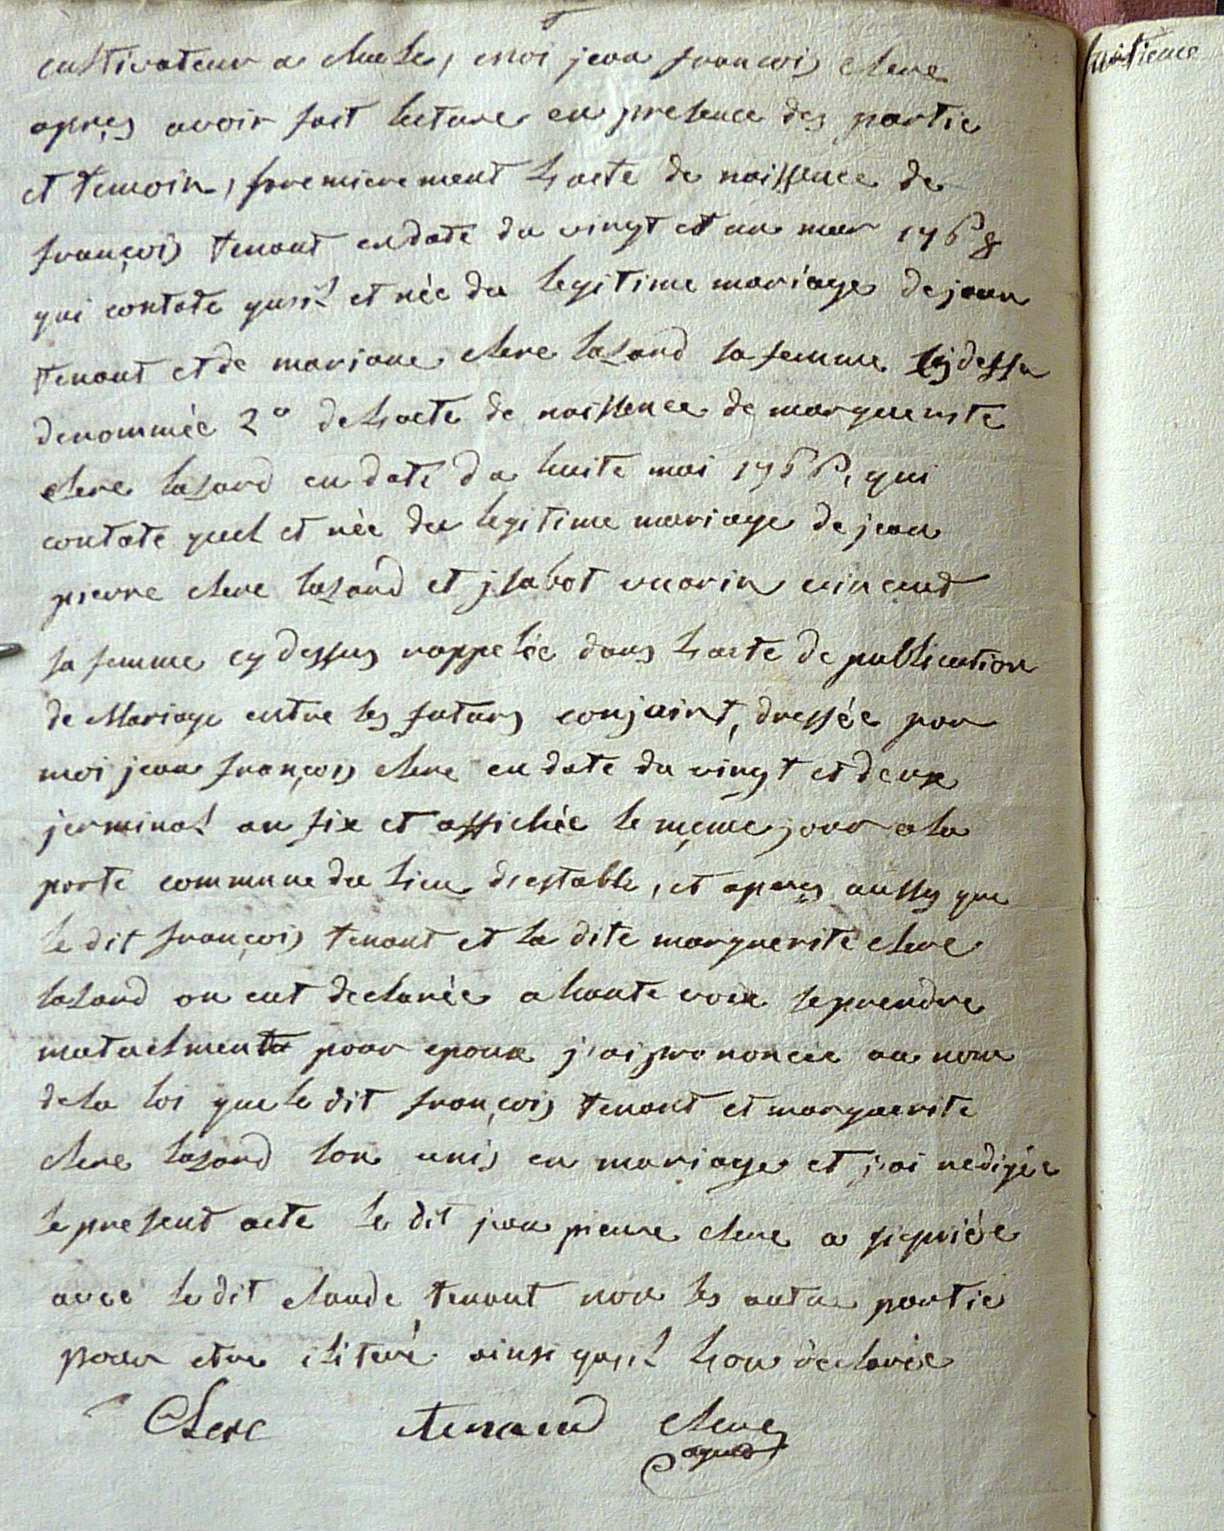 cultivateur a chucle, moi jean françois clerc
apres avoir fait lecture en presence des partie
et temoin, premierement l'acte de naissence de
françois tenant en date du vingt et un mar 1768
qui contate qu'il et née du legitime mariage de jean
tenant et de mariane clerc lazard sa femme cy dessu
denommée 2° de l'acte de naissence de marguerite
clerc lazard en date du huite mai 1766, qui
contate quel et née du legitime mariage de jean
pierre clerc lazard et jsabot vuarin vincend
sa femme cy dessus rappelée dans l'acte de publication
de Mariage entre les futurs conjoint, dressée par
moi jean françois clerc en date du vingt et deux
jerminal an six et affichée le meme jour a la
porte commune du lieu d'estable, et apres aussy que
le dit françois tenant et la dite marguerite clerc
lazard on eut declarée a haute voix se prendre
mutuelment pour epoux j'ai prononcée au nom
de la loi que le dit françois tenant et marguerite
clerc lazard son unis en mariage et j'ai redigée
le present acte le dit jean pierre clerc a signiée
avec le dit claude tenant non les autre partie
pour etre iliteré ainsi qu'il l'on declarée
Clerc tenand clerc
agent